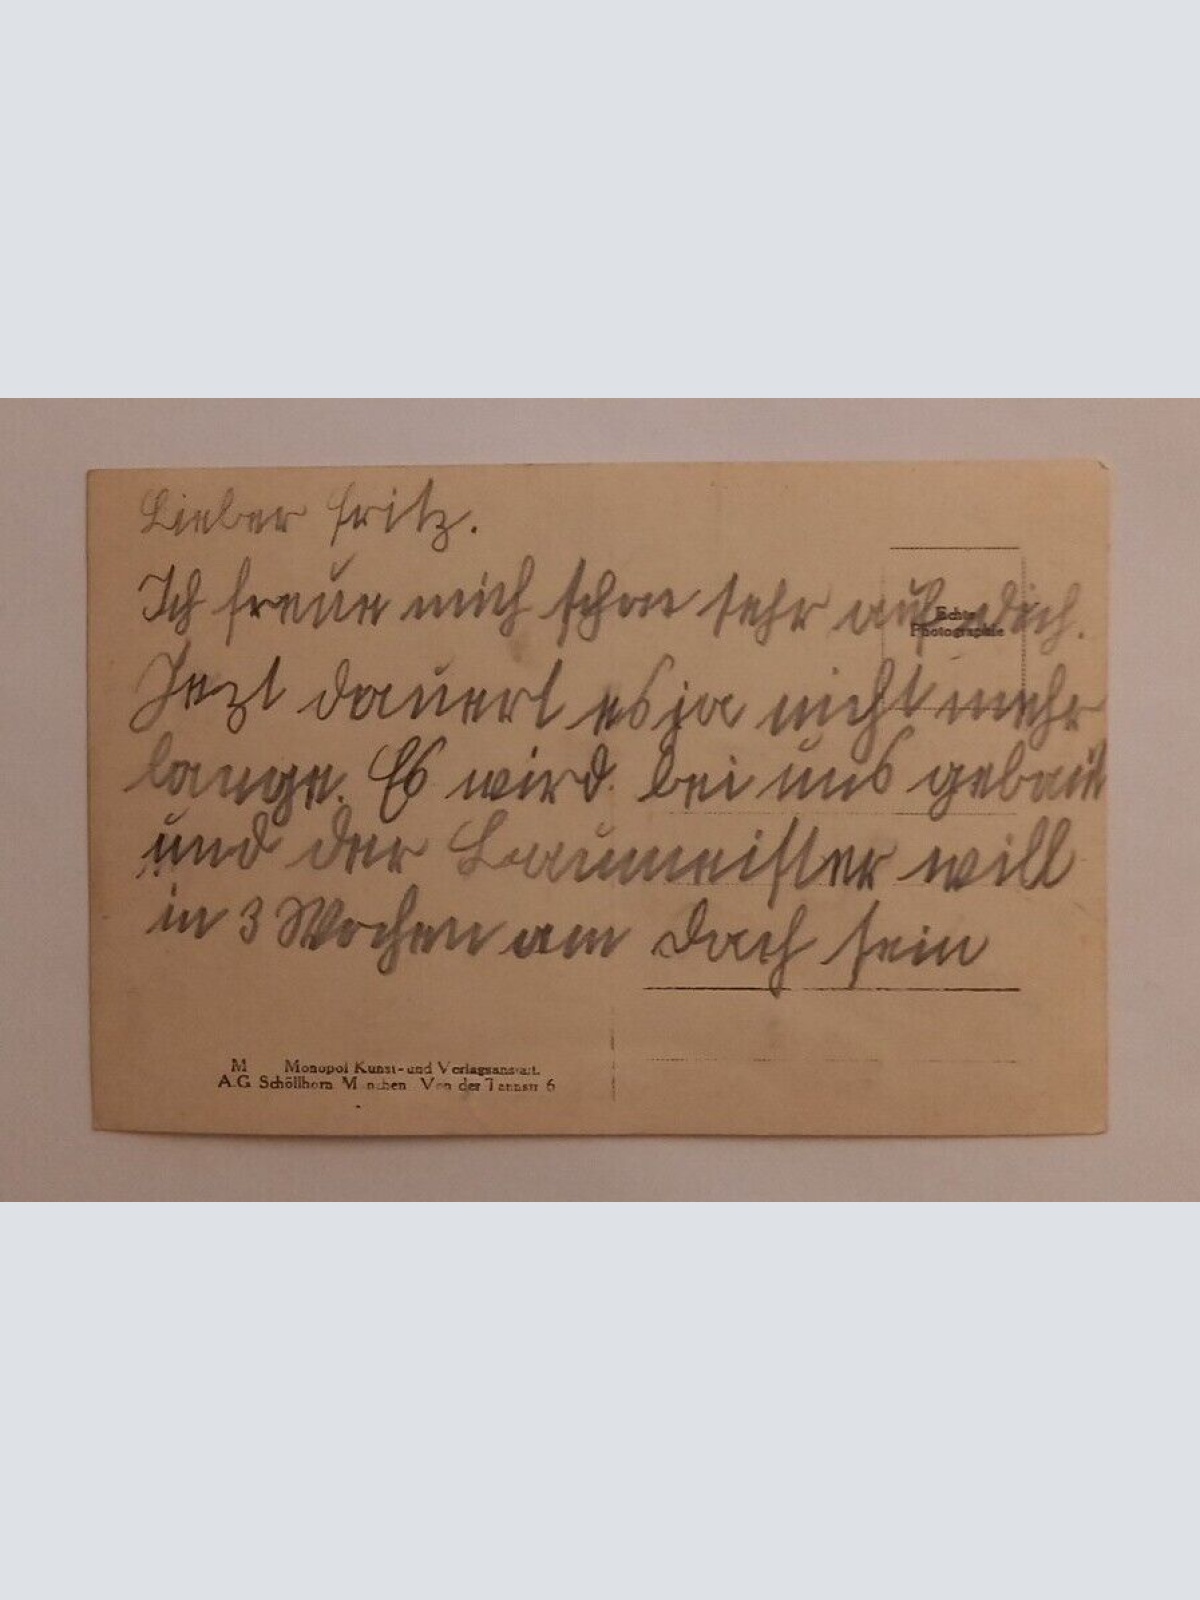 Lieber Fritz.
Ich freue mich schon sehr auf dich.
Echte
Photographie
Jezt dauert es ja nicht mehr
lange. Es wird bei uns gebaut
und der Baumeister will
in 3 Wochen am Dach sein
M Monopol Kunst- und Verlagsanstalt.
A.G. Schöllhorn München Von der Tannstr 6